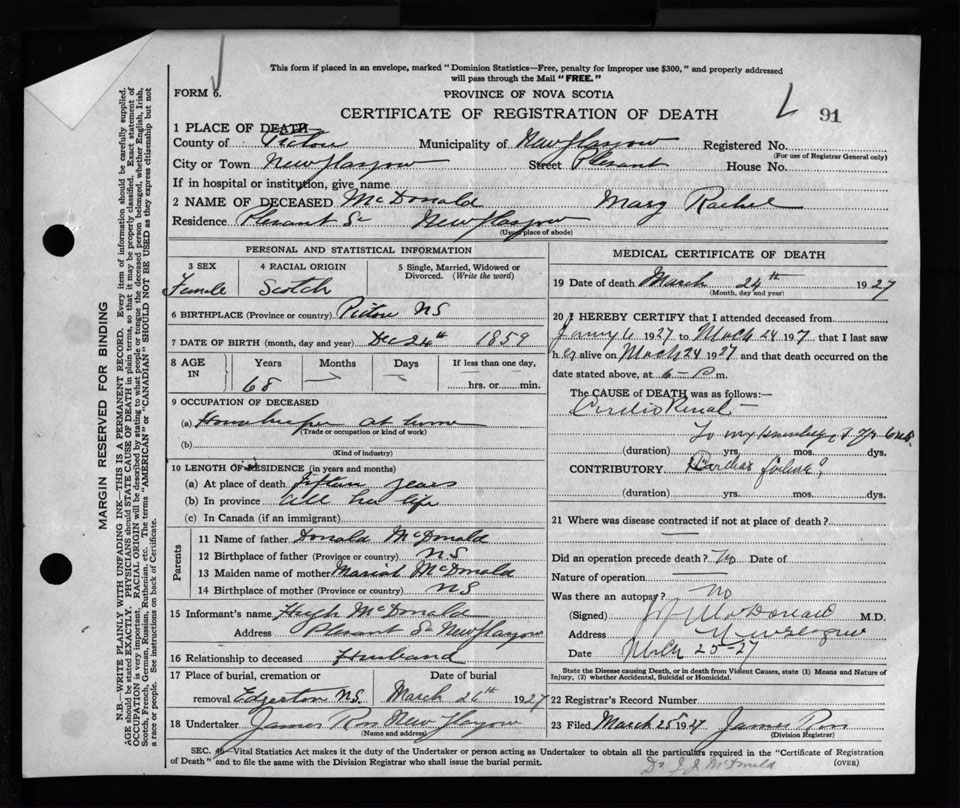 This form if placed in an envelope, marked "Dominion Statistics—Free, penalty for improper use $300," and properly addressed
will pass through the Mail "FREE."
FORM 6.
PROVINCE OF NOVA SCOTIA
CERTIFICATE OF REGISTRATION OF DEATH
L 91
1 PLACE OF DEATH
County of Pictou Municipality of New Glasgow Registered No.
(For use of Registrar General only)
City or Town New Glasgow Street Plesant House No.
If in hospital or institution, give name
2 NAME OF DECEASED McDonald Mary Rachel
Residence Plesant St New Glasgow
(Usual place of abode)
PERSONAL AND STATISTICAL INFORMATION
3 SEX 4 RACIAL ORIGIN 5 Single, Married, Widowed or Divorced. (Write the word)
Female Scotch
6 BIRTHPLACE (Province or country) Pictou NS
7 DATE OF BIRTH (month, day and year) Dec 24th 1859
8 AGE IN Years Months Days If less than one day,
68 hrs. or min.
9 OCCUPATION OF DECEASED
(a) Housekeeper at home
(Trade or occupation or kind of work)
(b)
(Kind of industry)
10 LENGTH OF RESIDENCE (in years and months)
(a) At place of death fifteen years
(b) In province all her life
(c) In Canada (if an immigrant)
Parents
11 Name of father Donald McDonald
12 Birthplace of father (Province or country) NS
13 Maiden name of mother McDonald
14 Birthplace of mother (Province or country) NS
15 Informant's name Hugh McDonald
Address Plesant St New Glasgow
16 Relationship to deceased Husband
17 Place of burial, cremation or Date of burial
removal Edgerton N.S. March 26th 1927
18 Undertaker James Ross New Glasgow
(Name and address)
MEDICAL CERTIFICATE OF DEATH
19 Date of death March 24th 1927
(Month, day and year)
20 I HEREBY CERTIFY that I attended deceased from
1927 to March 24 1927 that I last saw
her alive on March 24 1927 and that death occurred on the
date stated above, at 6 P m.
The CAUSE of DEATH was as follows:—
Cardio Renal
To my knowledge
(duration) yrs. mos. dys.
CONTRIBUTORY Cardiac failure
(duration) yrs. mos. dys.
21 Where was disease contracted if not at place of death?
Did an operation precede death? No Date of
Nature of operation
Was there an autopsy? No
(Signed) McDonald M.D.
Address New Glasgow
Date March 25-27
State the Disease causing Death, or in death from Violent Causes, state (1) Means and Nature of
Injury, (2) whether Accidental, Suicidal or Homicidal.
22 Registrar's Record Number
23 Filed March 25 1927 James Ross
(Division Registrar)
SEC. 46—Vital Statistics Act makes it the duty of the Undertaker or person acting as Undertaker to obtain all the particulars required in the "Certificate of Registration
of Death" and to file the same with the Division Registrar who shall issue the burial permit.
(OVER)
Dr J J McDonald
MARGIN RESERVED FOR BINDING
N.B.—WRITE PLAINLY WITH UNFADING INK—THIS IS A PERMANENT RECORD. Every item of information should be carefully supplied.
AGE should be stated EXACTLY. PHYSICIANS should STATE CAUSE OF DEATH in plain terms, so that it may be properly classified. Exact statement of
OCCUPATION is very important. RACIAL ORIGIN will be described by stating to what people or tongue the deceased person belonged, whether English, Irish,
Scotch, French, German, Russian, Ruthenian, etc. The terms "AMERICAN" or "CANADIAN" SHOULD NOT BE USED as they express citizenship but not
a race or people. See instructions on back of Certificate.